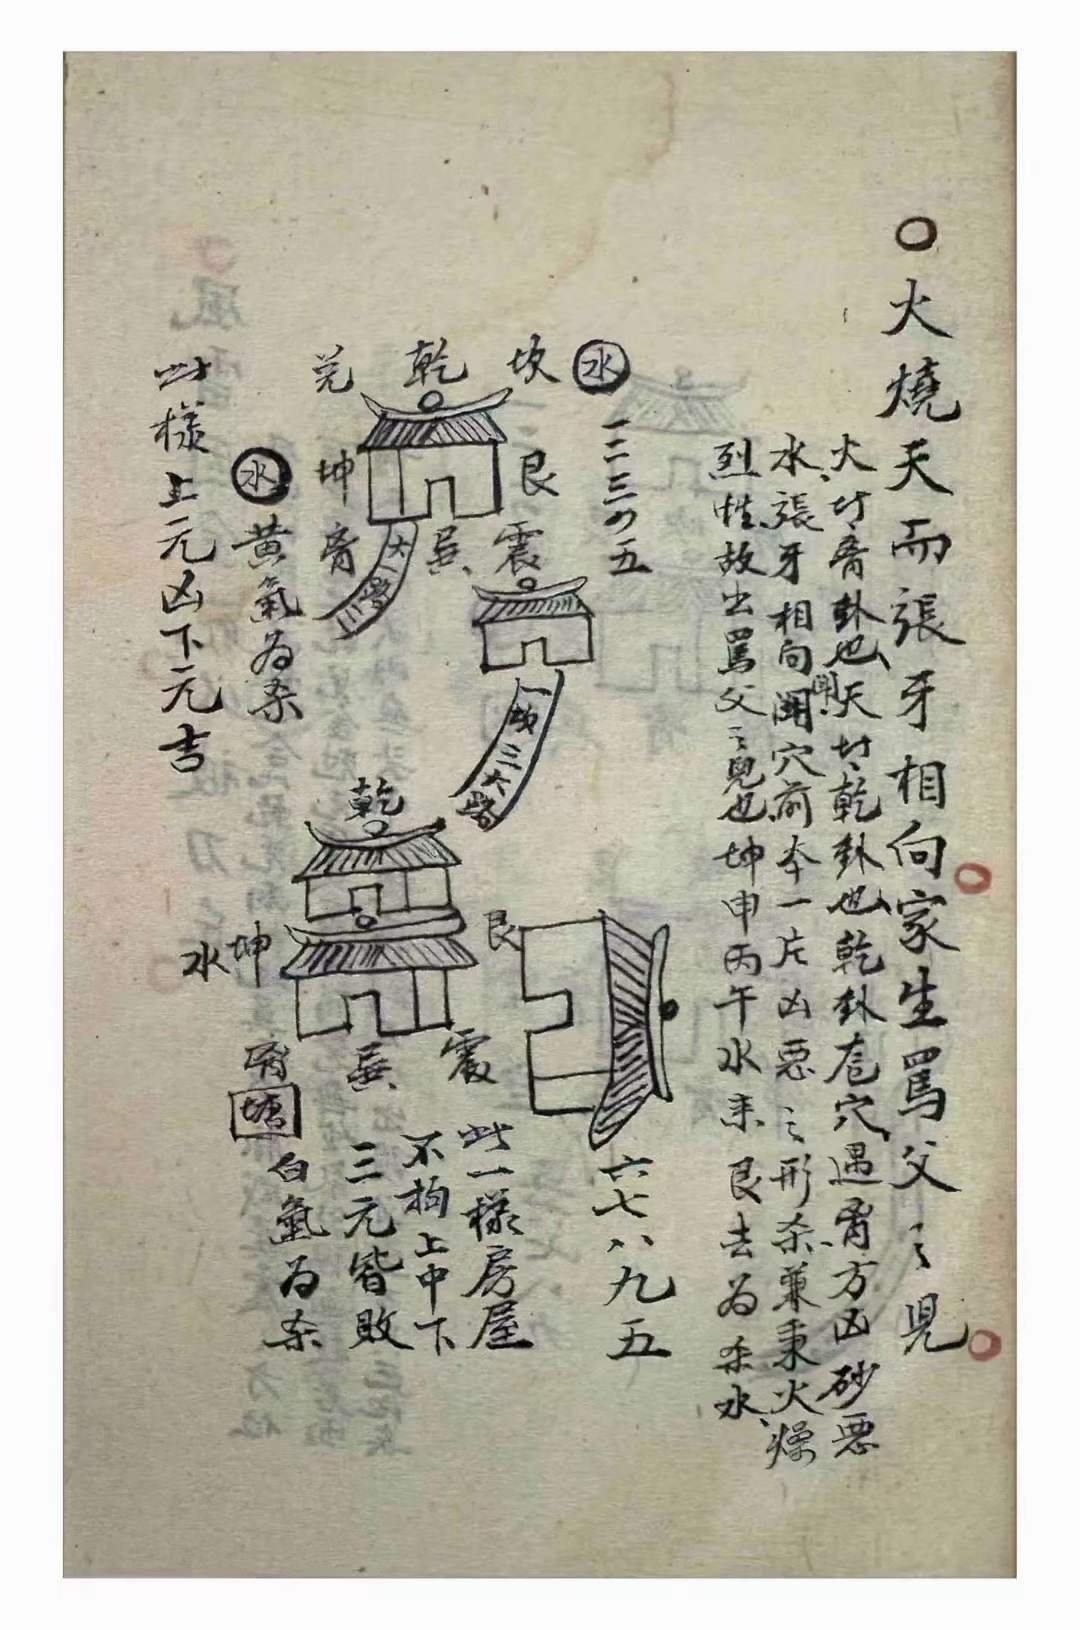 ○火燒天而張牙相向家生罵父之兒
火、廿离卦也、天廿乾卦也、乾卦宅穴遇离方凶砂惡
水、張牙相向開穴前本一片凶惡之形杀兼秉火燥
烈性故出罵父之兒也坤申丙午水来艮去為杀水
一二三四五
六七八九五
水
坎
乾
兑
艮
坤
震
巽
离
大路
三大路
水
黄氣為杀
此樣上元凶下元吉
乾
艮
坤
水
震
巽
离
塘
此一樣房屋
不拘上中下
三元皆敗
白氣為杀